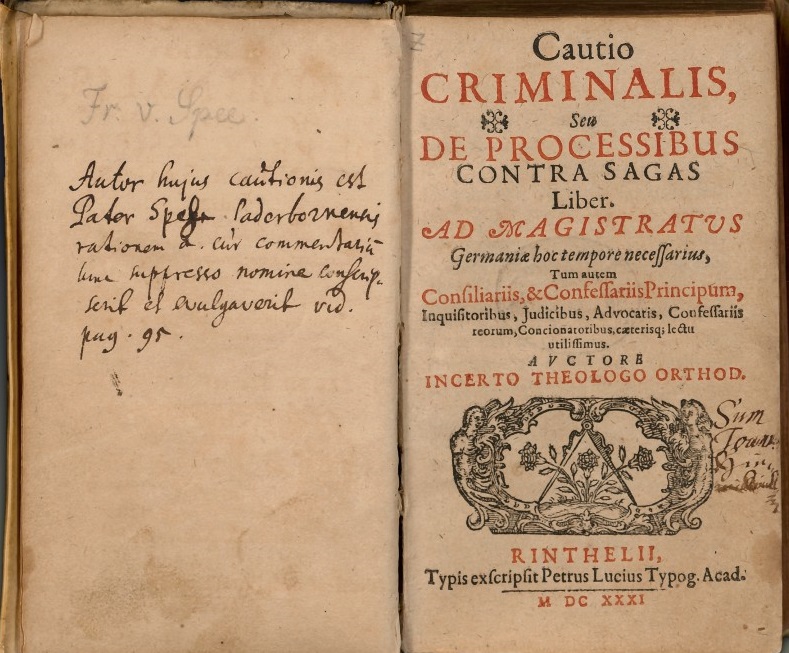 Fr. v. Spee.
Autor hujus cautionis est
Pater Paderbornensis
rationem cur commentariū
suppresso nomine conscrip-
serit et evulgaverit vid.
pag. 95.
Cautio
CRIMINALIS,
Seu
DE PROCESSIBUS
CONTRA SAGAS
Liber.
AD MAGISTRATVS
Germaniæ hoc tempore necessarius,
Tum autem
Consiliariis, & Confessariis Principum,
Inquisitoribus, Judicibus, Advocatis, Confessariis
reorum, Concionatoribus, cæterisq; lectu
utilissimus.
AVCTORE
INCERTO THEOLOGO ORTHOD.
Sum
RINTHELII,
Typis exscripsit Petrus Lucius Typog. Acad.
M DC XXXI